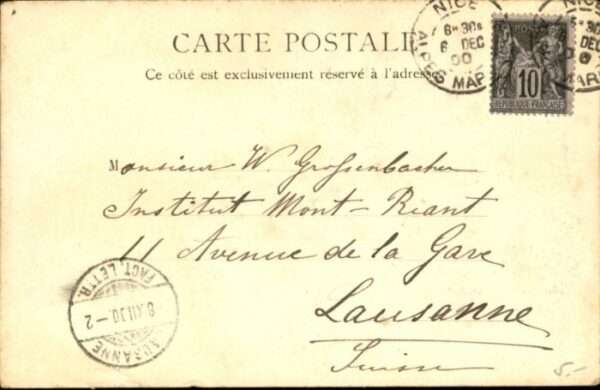 CARTE POSTALE
Ce côté est exclusivement réservé à l'adresse
NICE
6 30
6 DEC
00
ALPES MAR
10
REPUBLIQUE FRANÇAISE
NICE
30
DEC
MAR
Monsieur W. Grossenbacher
Institut Mont-Riant
11 Avenue de la Gare
Lausanne
Suisse
LAUSANNE
8.XII.00-2
FACT. LETTR.
5.-